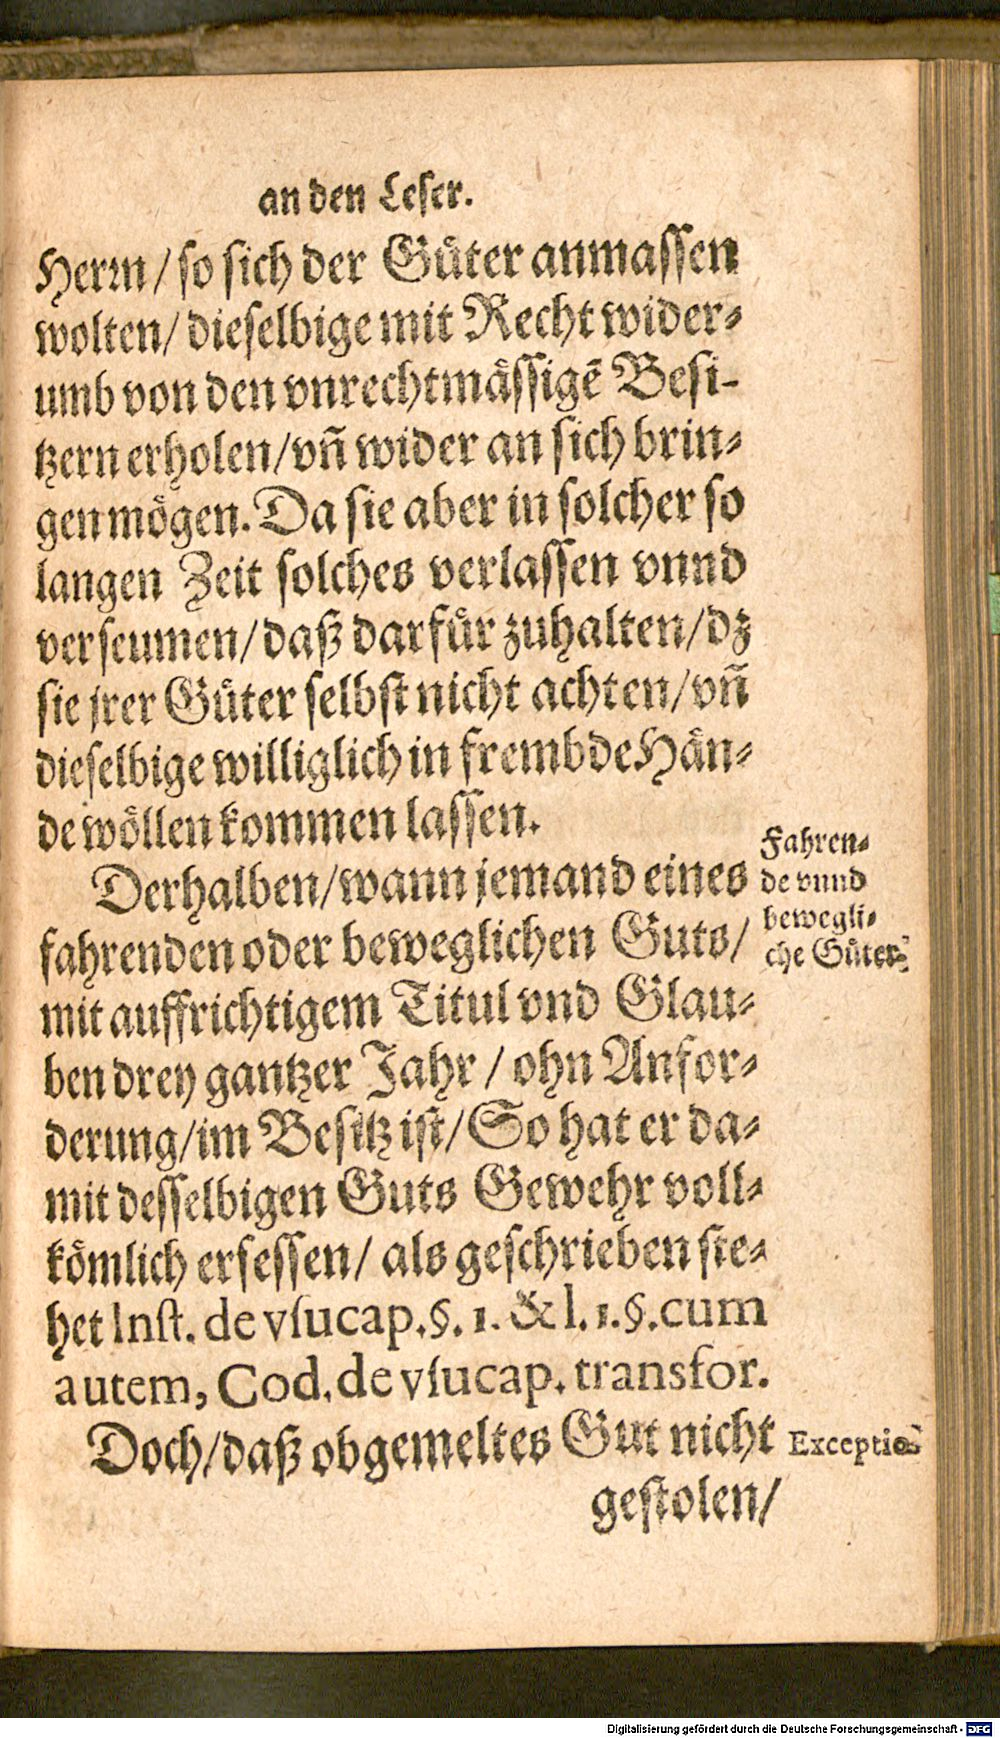 an den Leser.
Herꝛn / so sich der Guͤter anmassen
wolten / dieselbige mit Recht wider-
umb von den vnrechtmaͤssigẽ Besi-
tzern erholen / vñ wider an sich brin-
gen moͤgen. Da sie aber in solcher so
langen Zeit solches verlassen vnnd
verseumen / daß darfuͤr zuhalten / dz
sie jrer Guͤter selbst nicht achten / vñ
dieselbige williglich in frembde Haͤn-
de woͤllen kommen lassen.
Derhalben / wann jemand eines
fahrenden oder beweglichen Guts /
mit auffrichtigem Titul vnd Glau-
ben drey gantzer Jahr / ohn Anfor-
derung / im Besitz ist / So hat er da-
mit desselbigen Guts Gewehr voll-
koͤmlich ersessen / als geschrieben ste-
het Inst. de vsucap. §. 1. & l. 1. §. cum
autem, Cod. de vsucap. transfor.
Doch / daß obgemeltes Gut nicht
gestolen /
Fahren-
de vnnd
bewegli-
che Guͤter.
Digitalisierung gefördert durch die Deutsche Forschungsgemeinschaft - DFG